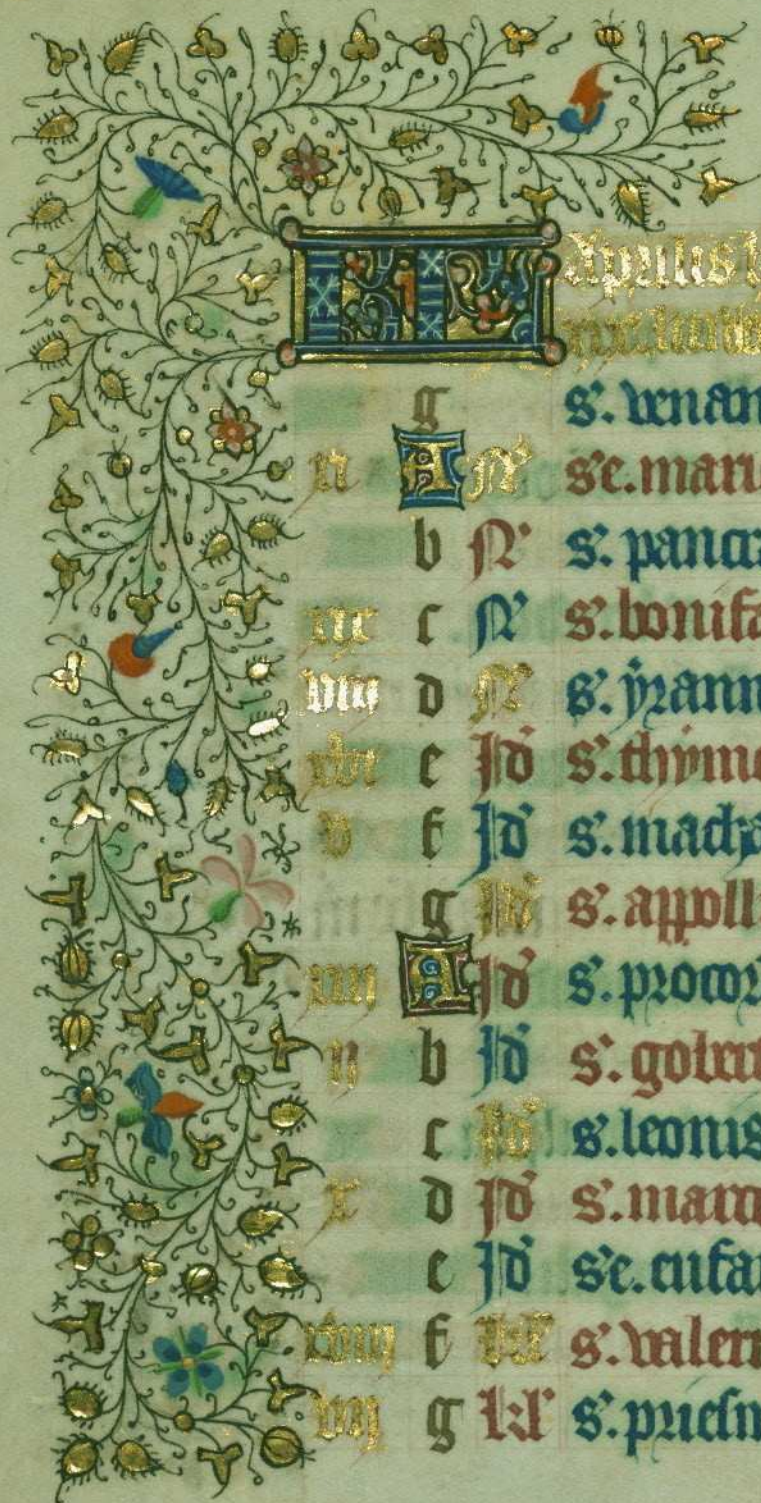 KL Aprilis
g s. venan
xi A N' se. mari
b N' s. pancra
xix c N' s. bonifa
viij d N' s. yrann
xvi e Id' s. thimo
v f Id' s. macha
g Id' s. appoll
xiij A Id' s. procor
ij b Id' s. gobert
c Id' s. leonis
x d Id' s. marci
e Id' se. eufa
xviij f kl' s. valeri
vij g kl' s.